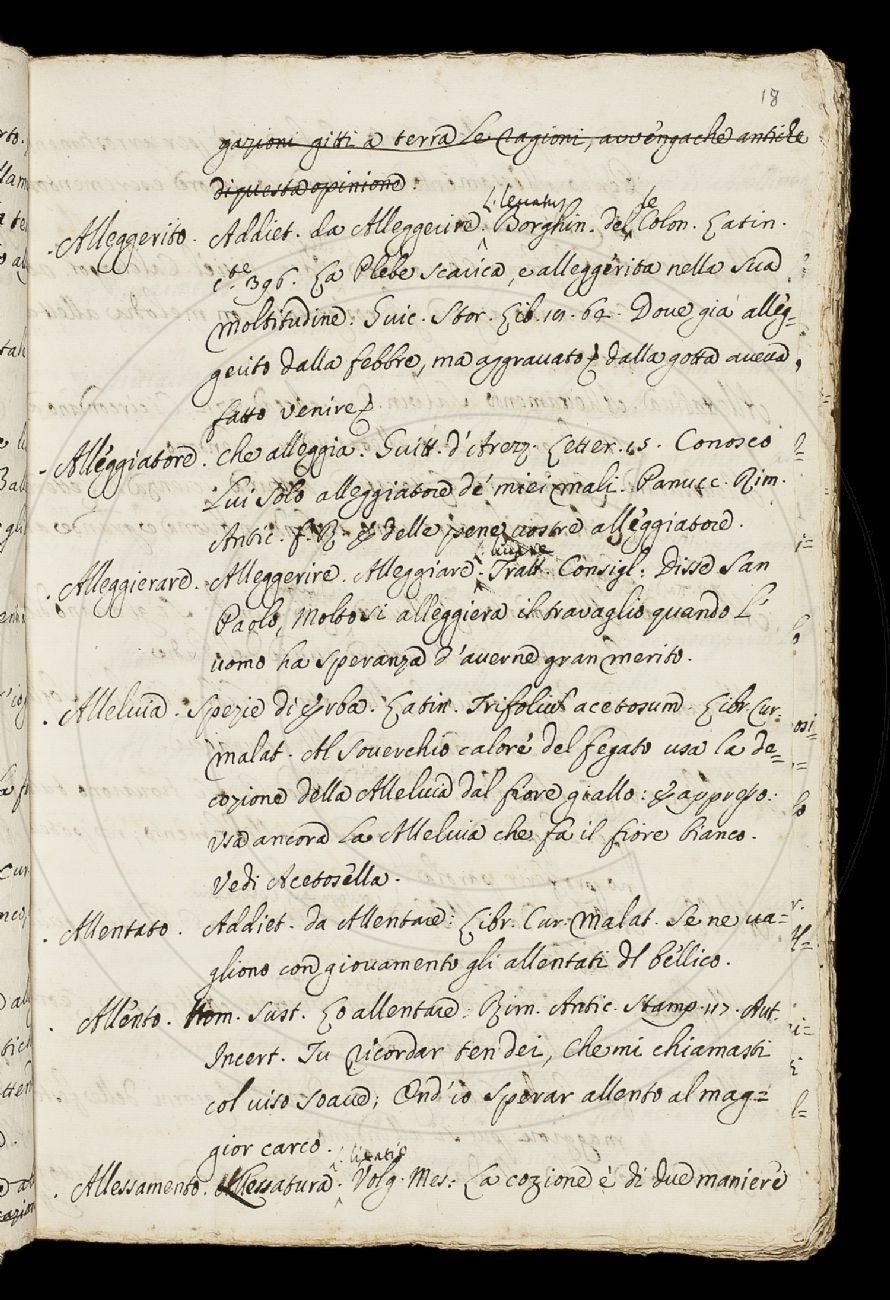 18
gazioni gitti a terra le ragioni, avvengache antiche
di questa opinione.
L. levatus te
Alleggerito. Addiet. da Alleggerire. Borghin. del Colon. Latin.
c.te 396. La Plebe scarica, e alleggerita nella sua
moltitudine. Guic. Stor. Lib. 19. 62. Dove già alleg=
gerito dalla febbre, ma aggravato dalla gotta aveva
fatto venire
Alleggiatore. Che alleggia. Guitt. d'Arezz. Letter. 15. Conosco
Lui solo alleggiatore de' miei mali. Panucc. Rim.
Antic. f. R. delle pene nostre alleggiatore.
Alleggierare. Alleggerire. Alleggiare. Tratt. Consigl. Disse San
Paolo, Molto si alleggiera il travaglio quando L'
uomo ha speranza d'averne gran merito.
Alleluia. Spezie di Erba. Latin. Trifoliu acetosum. Libr. Cur.
malat. Al soverchio calore del fegato usa la de=
cozione della Alleluia dal fiore giallo: E appresso:
Usa ancora la Alleluia che fa il fiore bianco.
Vedi Acetosella.
Allentato. Addiet. da Allentare. Libr. Cur. Malat. Se ne va=
gliono con giovamento gli allentati di bellico.
Allento. Nom. Sust. Lo allentare. Rim. Antic. Stamp. 117. Aut.
Incert. Tu ricordar ten dei, Che mi chiamasti
col viso soave; Ond'io sperar allento al mag=
gior carco.
Allessamento. Allessatura. Volg. Mes. La cozione è di due maniere